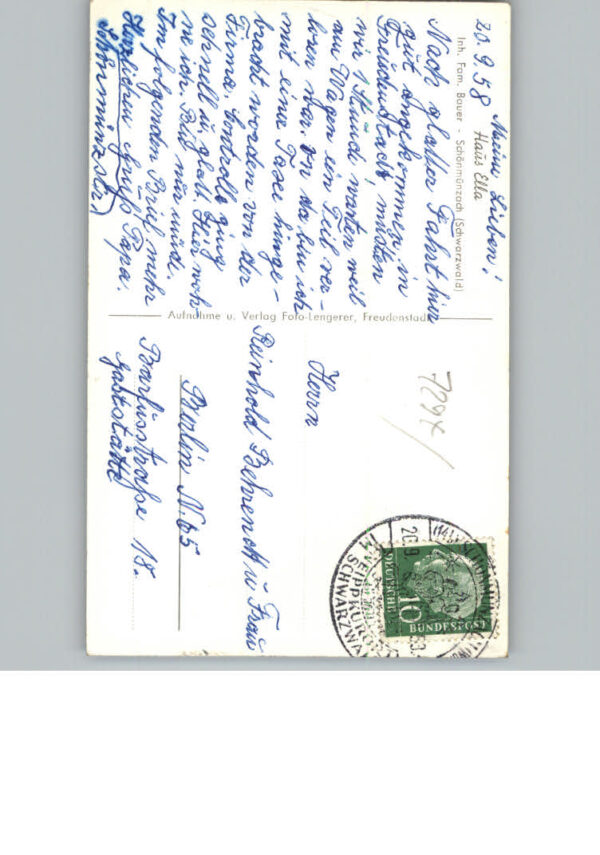 20.9.58 Meine Lieben!
Haus Ella
Inh. Fam. Bauer - Schönmünzach (Schwarzwald)
Nach glatter Fahrt hier
gut angekommen, in
Freudenstadt mußten
wir 1 Stunde warten weil
am Wagen ein Teil ver-
loren war. Von da bin ich
mit einer Taxe hinge-
bracht worden von der
Firma. Kontrolle ging
schnell u. glatt. Hier woh-
ne ich. Bin nur müde.
Im folgenden Brief mehr
Herzlichen Gruß Papa.
Schönmünzach
Aufnahme u. Verlag Foto-Lengerer, Freudenstadt
7294
Herrn
Reinhold Behrendt u Frau
Berlin N.65
Barfusstraße 18.
Gaststätte
10
DEUTSCHE
BUNDESPOST
20.9.
KNEIPPKURORT
IM SCHWARZWALD